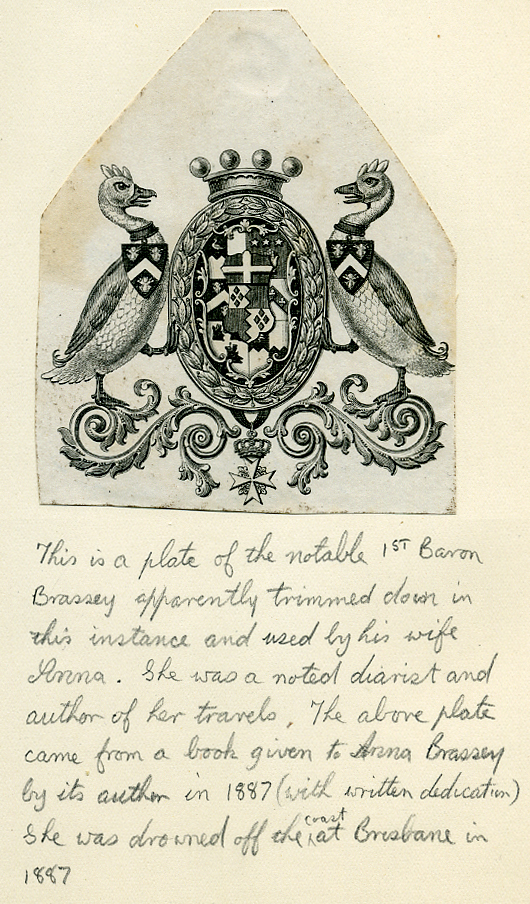 This is a plate of the notable 1ST Baron
Brassey apparently trimmed down in
this instance and used by his wife
Anna. She was a noted diarist and
author of her travels. The above plate
came from a book given to Anna Brassey
by its author in 1887 (with written dedication)
She was drowned off the coast at Brisbane in
1887